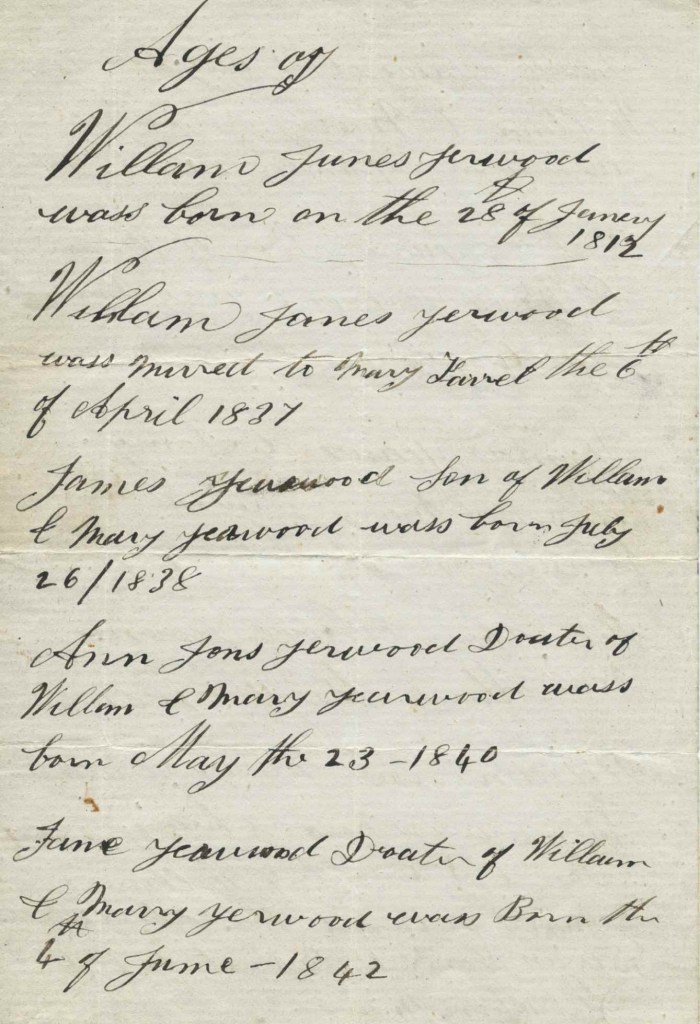 Ages of
Willam Junes yerwood
wass born on the 28th of Janery
1812
William Janes yerwood
wass mirret to Mary Farrel the 6th
of April 1837
James yearwood Son of Willam
& Mary yearwood wass born July
26/1838
Ann Jons yerwood Douter of
Willam & Mary yearwood wass
born May the 23 - 1840
Jane yearwood Douter of Willaim
& Marry yerwood wass Born the
4th of June - 1842